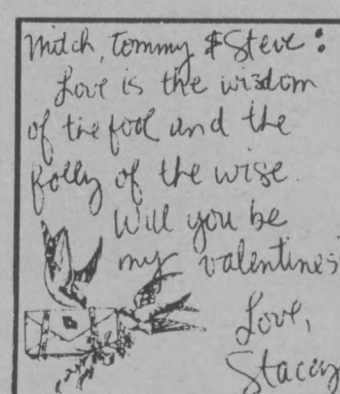 Mitch, Tommy & Steve:
Love is the wisdom
of the fool and the
folly of the wise.
Will you be
my valentines
Love,
Stacey